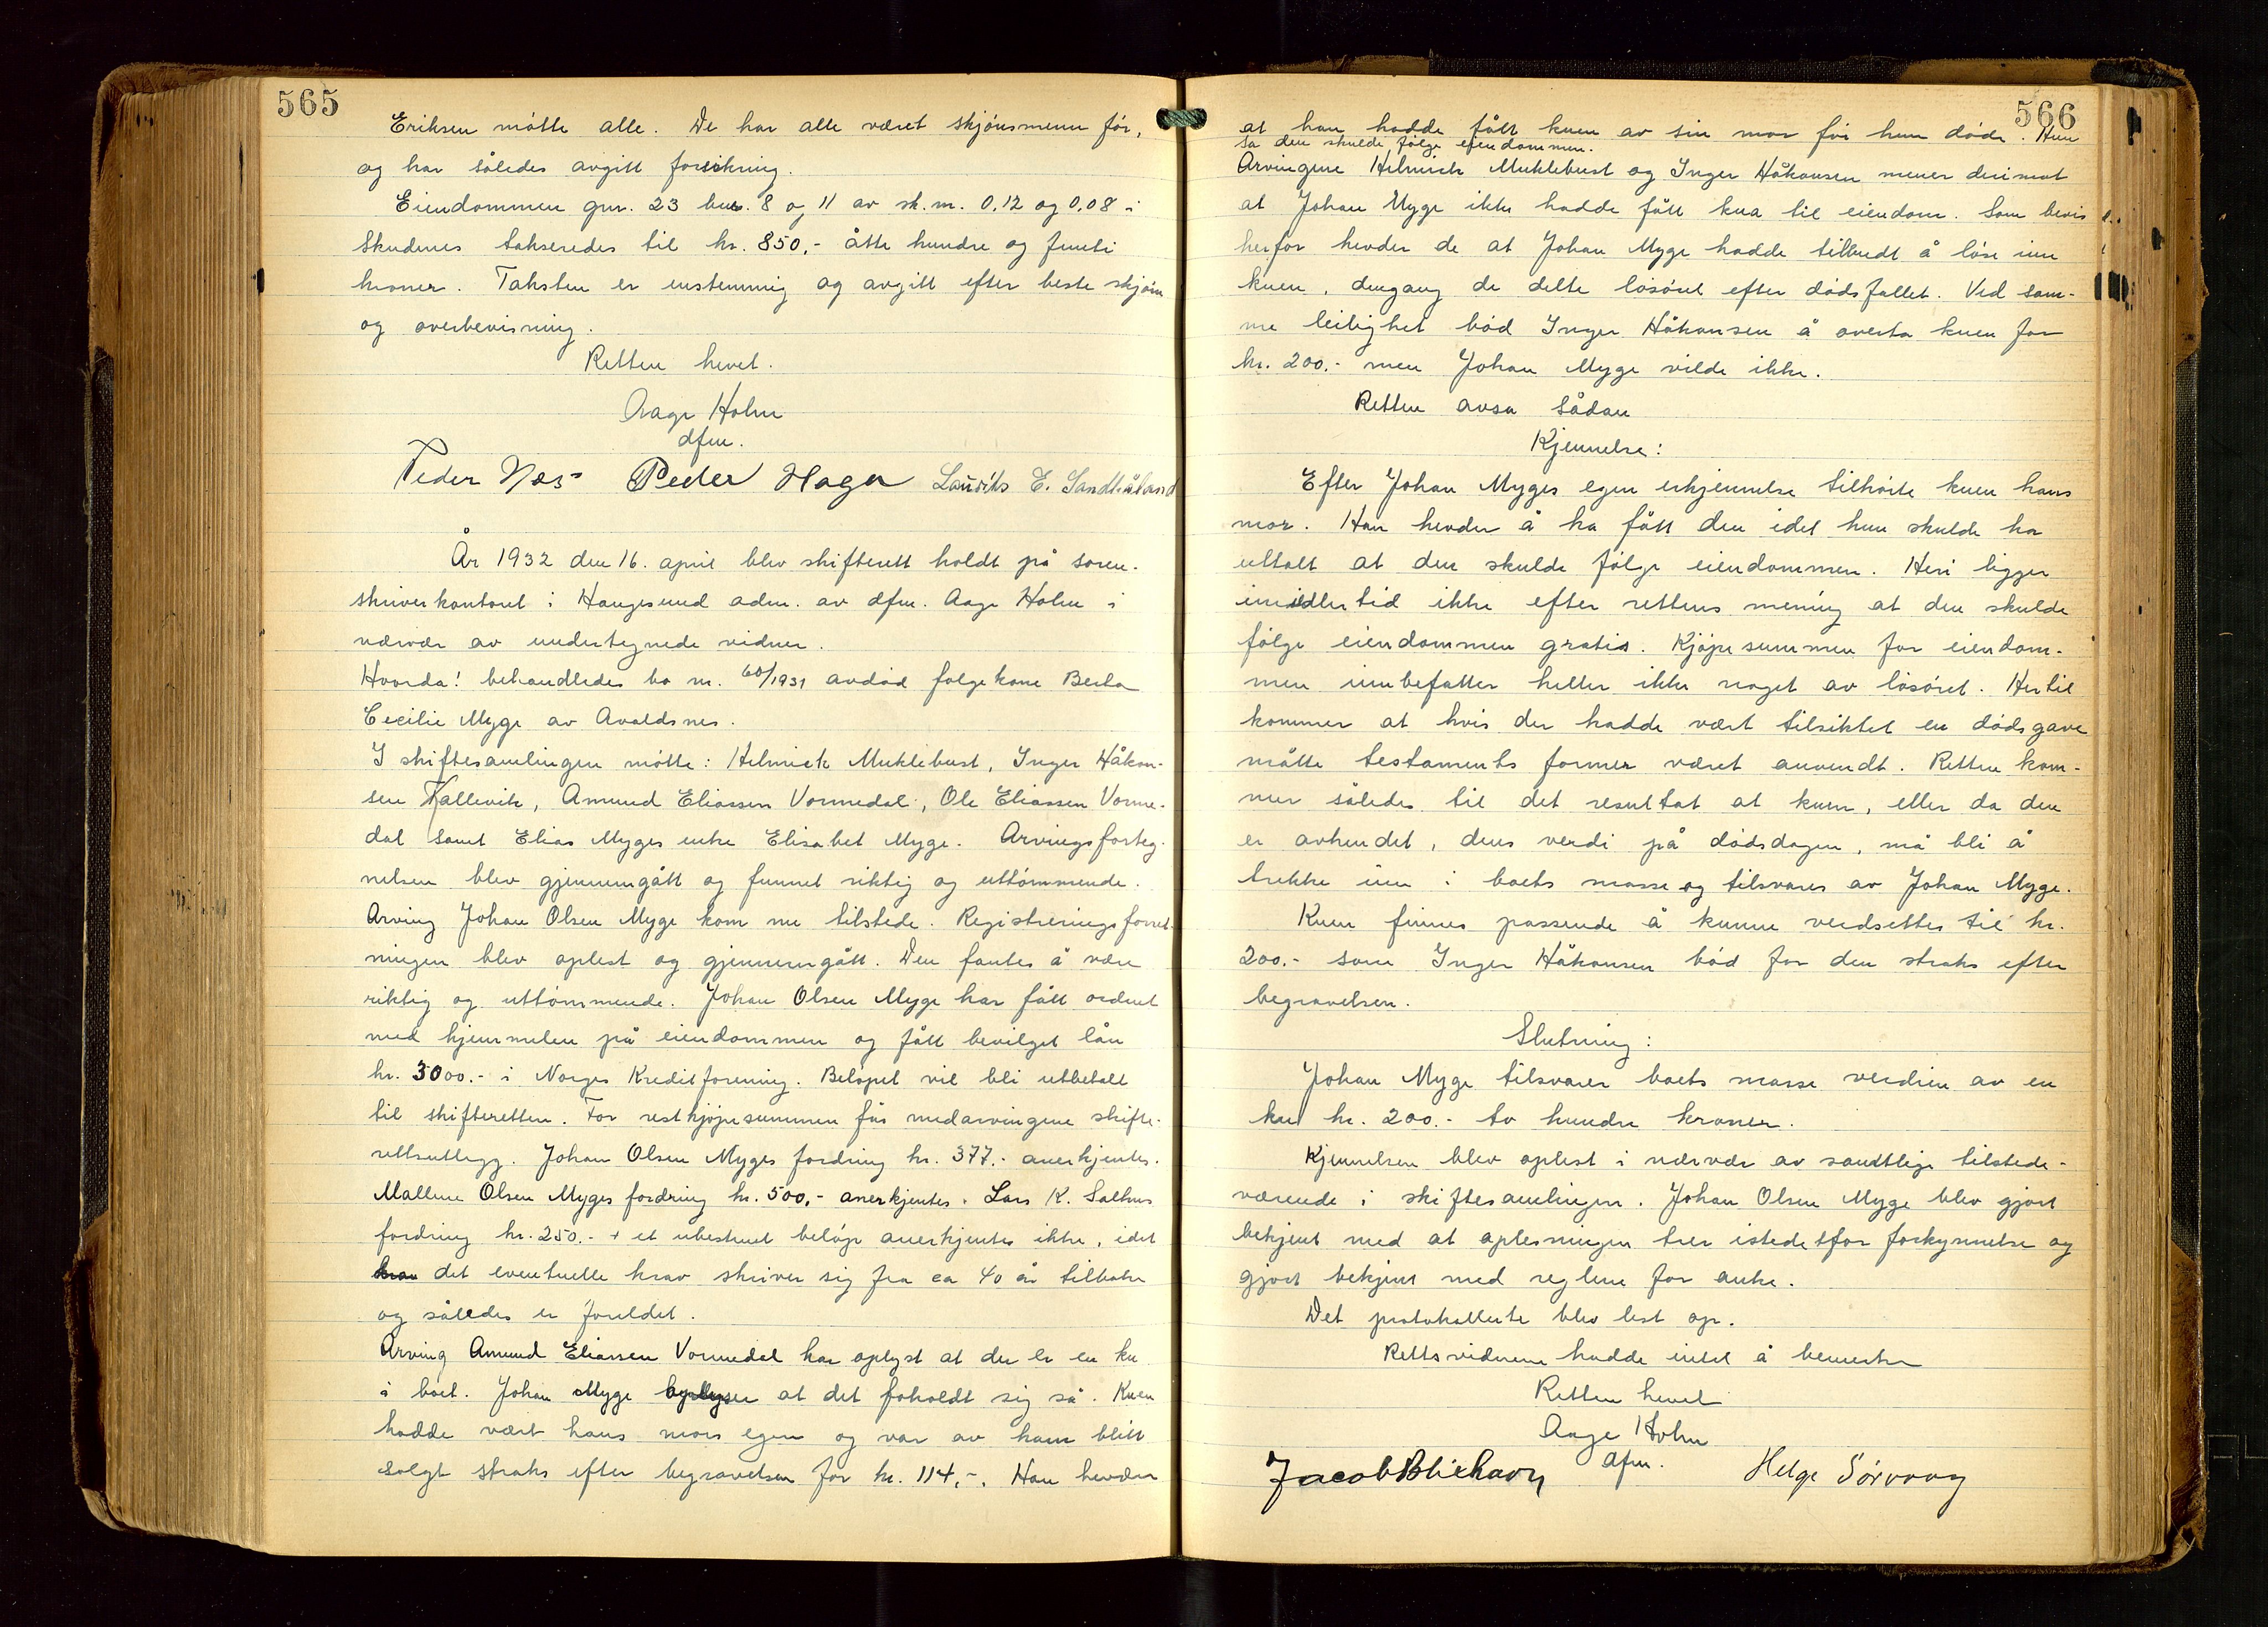 565
Eriksen møtte alle. De har alle været skjønsmenn før,
og har således avgitt forsikring.
Eiendommen gnr. 23 bnr. 8 og 11 av sk.m. 0,12 og 0,08 i
Skudenes takseredes til kr. 850,- åtte hundre og femti
kroner. Taksten er enstemmig og avgitt efter beste skjønn
og overbevisning.
Retten hevet.
Aage Holm
dfm.
Peder Næs Peder Haga Lauritz E.
År 1932 den 16. april blev skifterett holdt på soren-
skriverkontoret i Haugesund adm. av dfm. Aage Holm i
nærvær av undertegnede vidner.
Hvorda! behandledes bo nr. 60/1931 avdød følgekone Berta
Cecilie Myge av Avaldsnes.
I skiftesamlingen møtte: Helmick Muklebust, Inger Håkon-
sen Kallevik, Amund Eliassen Vormedal, Ole Eliassen Vorme-
dal samt Elias Myges enke Elisabet Myge. Arvingsforteg-
nelsen blev gjennemgått og funnet riktig og uttømmende.
Arving Johan Olsen Myge kom nu tilstede. Registreringsforret-
ningen blev oplest og gjennemgått. Den fantes å være
riktig og uttømmende. Johan Olsen Myge har fått ordnet
med hjemmelen på eiendommen og fått bevilget lån
kr. 3000.- i Norges Kreditforening. Beløpet vil bli utbetalt
til skifteretten. For restkjøpesummen får medarvingene skifte-
rettsutlegg. Johan Olsen Myges fordring kr. 377.- anerkjentes.
Malline Olsen Myges fordring kr. 500,- anerkjentes. Lars K. Salhus
fordring kr. 250.- + et ubestemt beløp anerkjentes ikke, idet
krav det eventuelle krav skriver sig fra ca 40 år tilbake
og således er foreldet.
Arving Amund Eliassen Vormedal har oplyst at der er en ku
i boet. Johan Myge oplyser at det foholdt sig så. Kuen
hadde vært hans mors egen og var av ham blitt
solgt straks efter begravelsen for kr. 114,-. Han hevder
566
at han hadde fått kuen av sin mor før hun døde. Hun
sa den skulde følge eiendommen.
Arvingene Helmick Muklebust og Inger Håkonsen mener derimot
at Johan Myge ikke hadde fått kua til eiendom. Som bevis
herfor hevder de at Johan Myge hadde tilbudt å løse inn
kuen, dengang de delte løsøret efter dødsfallet. Ved sam-
me leilighet bød Inger Håkonsen å overta kuen for
kr. 200.- men Johan Myge vilde ikke.
Retten avsa sådan
Kjennelse:
Efter Johan Myges egen erkjennelse tilhørte kuen hans
mor. Han hevder å ha fått den idet hun skulde ha
uttalt at den skulde følge eiendommen. Heri ligger
imidlertid ikke efter rettens mening at den skulde
følge eiendommen gratis. Kjøpesummen for eiendom-
men innbefatter heller ikke noget av løsøret. Hertil
kommer at hvis der hadde vært tilsiktet en dødsgave
måtte testaments former været anvendt. Retten kom-
mer således til det resultat at kuen, eller da den
er avhendet, dens verdi på dødsdagen, må bli å
trekke inn i boets masse og tilsvares av Johan Myge.
Kuen finnes passende å kunne verdsettes til kr.
200.- som Inger Håkonsen bød for den straks efter
begravelsen.
Slutning:
Johan Myge tilsvarer boets masse verdien av en
ku kr. 200.- to hundre kroner.
Kjennelsen blev oplest i nærvær av samtlige tilstede-
værende i skiftesamlingen. Johan Olsen Myge blev gjort
bekjent med at oplesningen trer istedetfor forkynnelse og
gjort bekjent med reglene for anke.
Det protokollerte blev lest op.
Rettsvidnene hadde intet å bemerke
Retten hevet
Aage Holm
dfm.
Jacob Blikhavn Helge Sørvaag